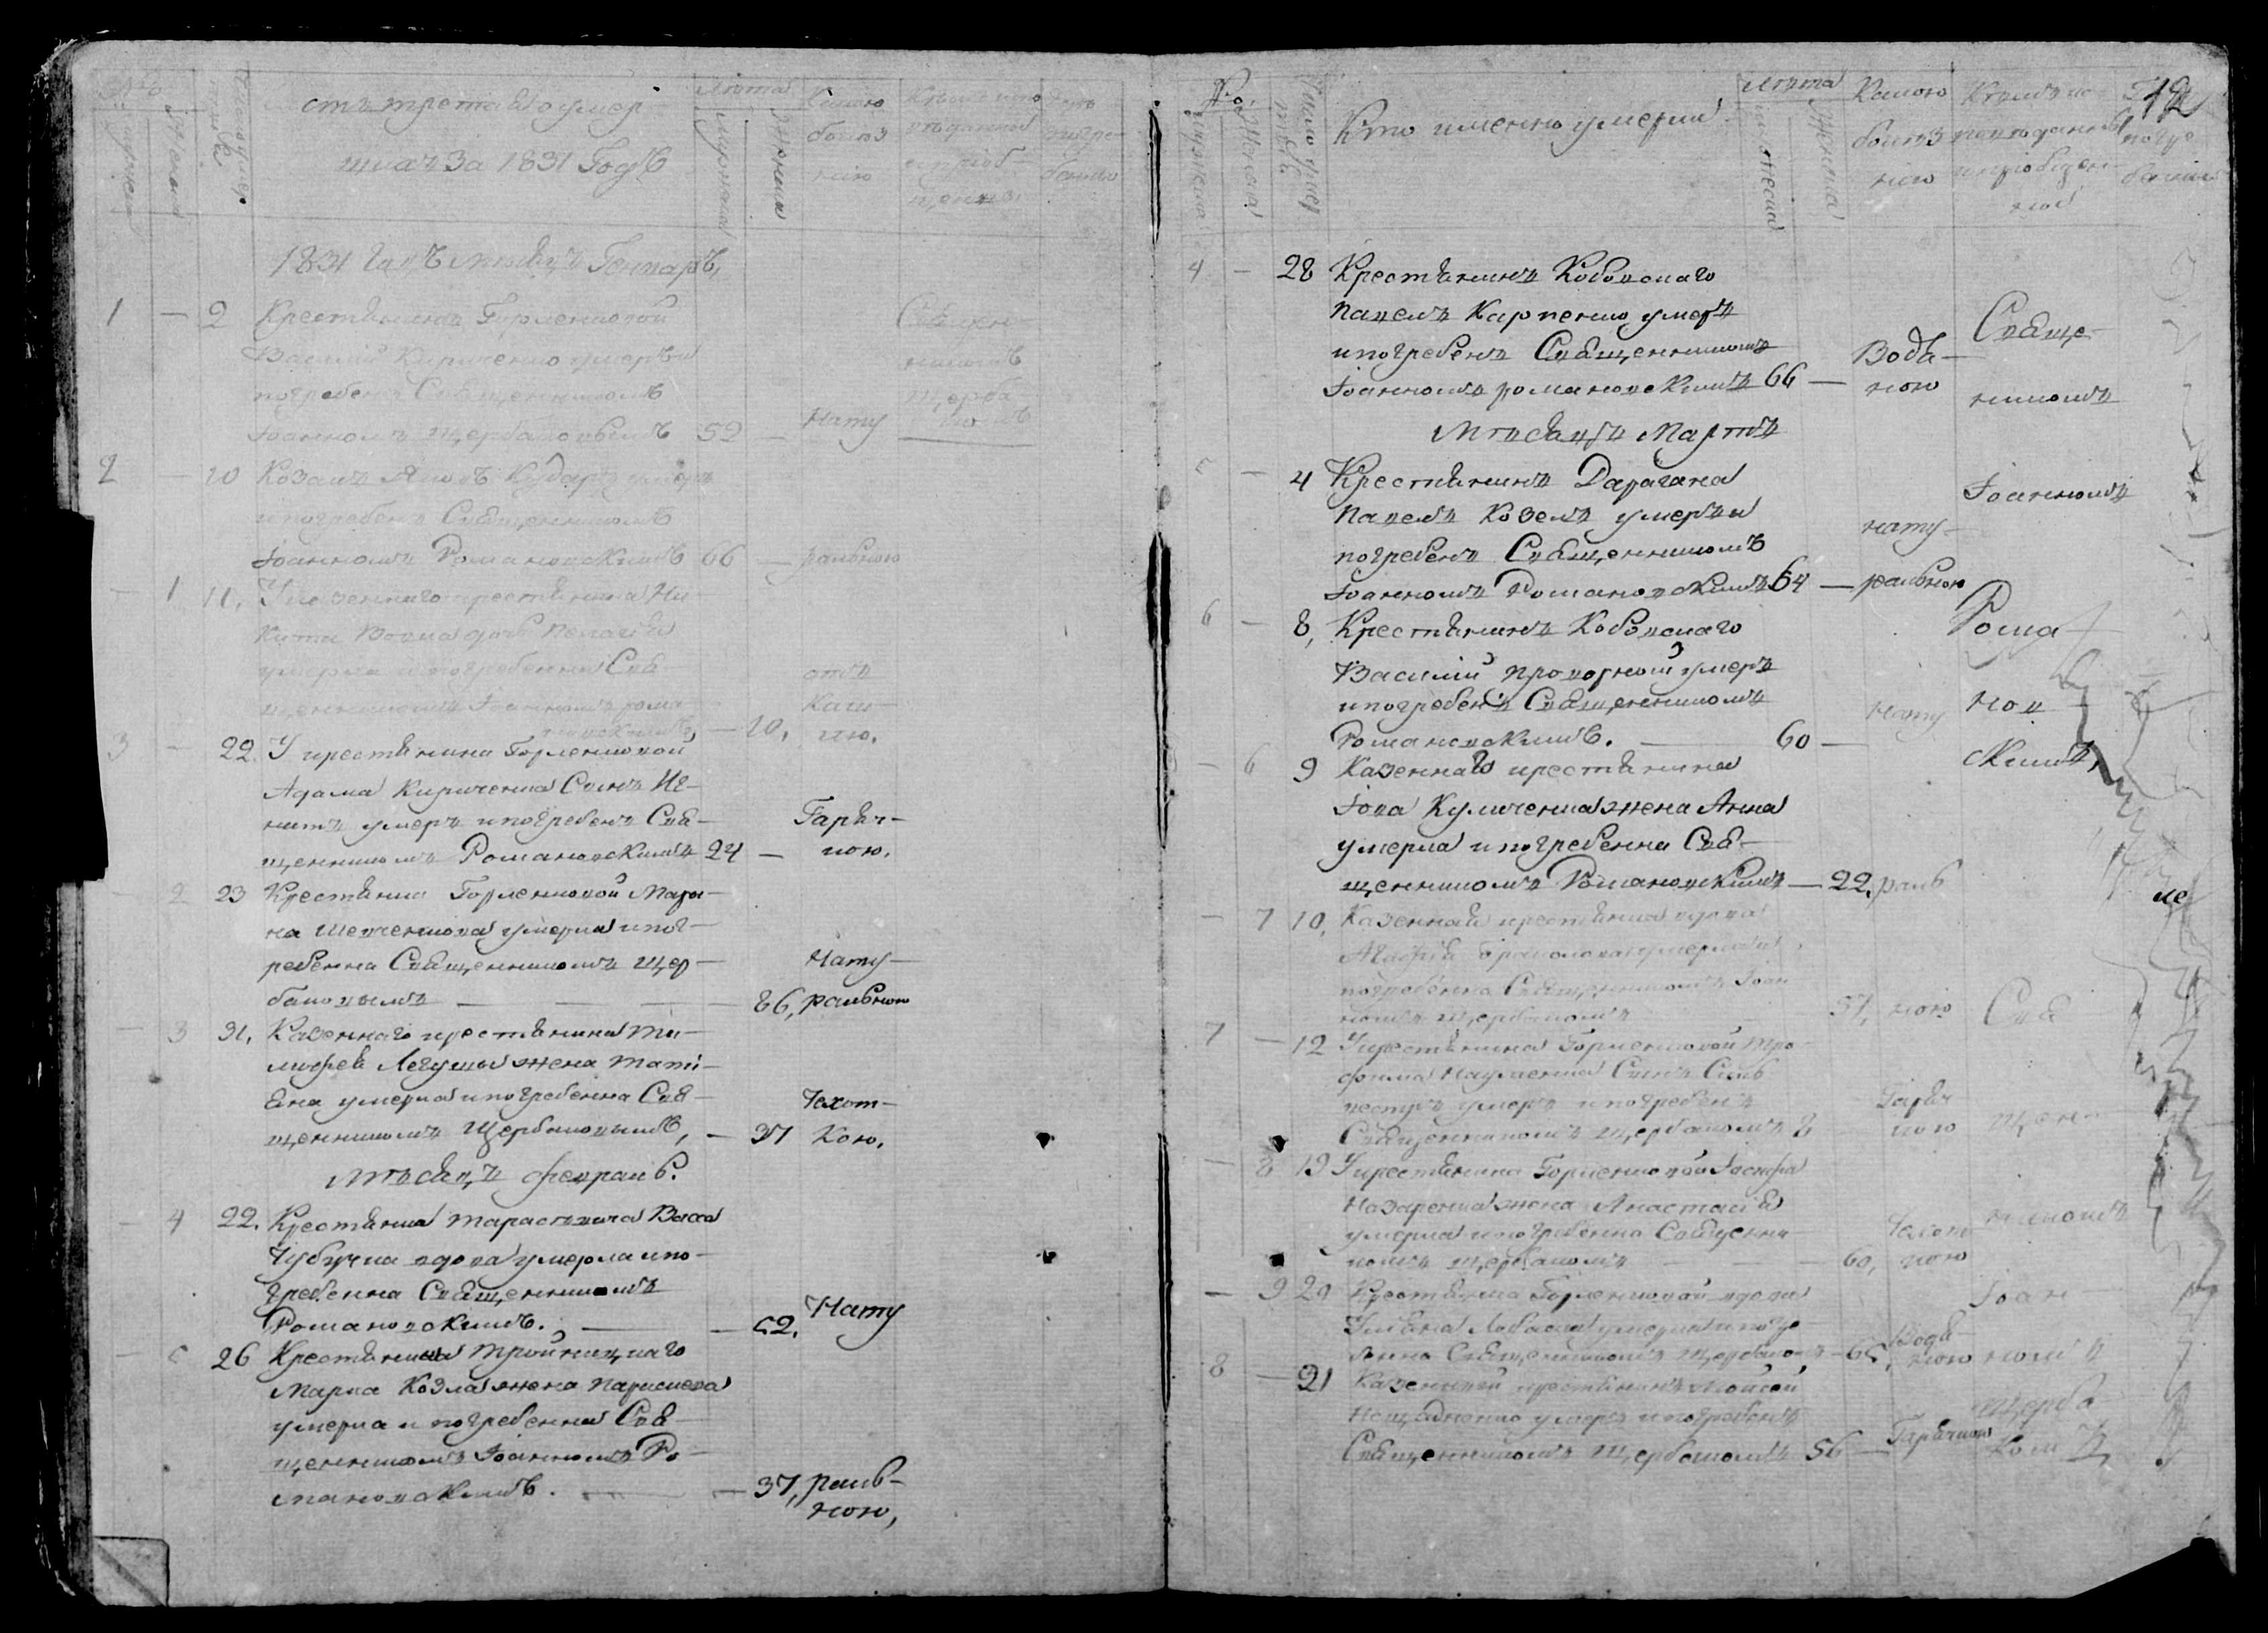 №
мужеска
женска
часть третая о умер-
шихъ за 1831 Годъ
Лѣта
мужеска
женска
Какою
болѣз
нію
Кѣмъ испо
вѣданы
и пріоб
щены.
Гдѣ
погре-
бены
1831 Года мѣсяцъ Генварь,
1 — 2 Крестянинъ Горленковой
Василій Кириченко умеръ и
погребенъ Священникомъ
Іоанномъ Щербаковымъ 52 — Нату
Священ-
никомъ
Щерба
ко въ
2 — 10 Козакъ Яковъ Кударъ умеръ
и погребенъ Священникомъ
Іоанномъ Романовскимъ 66 — ральною
— 1 11, У казеннаго крестянина Ни-
киты Вовка дочь Пелагія
умерла и погребенна Свя-
щенникомъ Іоанномъ Рома-
новскимъ, — 10,
отъ
каш-
лю.
3 — 22. У крестянина Горленковой
Адама Кириченка Сынъ Иг-
натъ умеръ и погребенъ Свя-
щенникомъ Романовскимъ 24 —
Гаряч-
кою.
— 2 23 Крестянка Горленковой Мари-
на Шевченкова умерла и пог-
ребенна Священникомъ Щер-
баковымъ — — — 86, ральною
Нату-
— 3 31, Казеннаго крестянина Ти-
мофея Легуши жена Тати-
яна умерла и погребенна Свя-
щенникомъ Щербаковымъ, — 37 Кою,
Чахот-
Мѣсяцъ Февраль.
— 4 22. Крестянка Тарасевича Васса
Чубучка вдова умерла и по-
гребенна Священникомъ
Романовскимъ. — — 52.
Нату
— 5 26 Крестянина Тройницкаго
Марка Козла жена Параскева
умерла и погребенна Свя-
щенникомъ Іоанномъ Ро-
мановскимъ. — — 37, раль-
ною,
№
мужеска
женска
Число умер
Кто именно умерли
Лѣта
мужеска
женска
Какою
болѣз
нію
Кѣмъ ис-
поведаны
и пріобщен-
ны
Гдѣ
погре
бенни
12
4 — 28 Крестянинъ Кобовскаго
Павелъ Карпенко умеръ
и погребенъ Священникомъ
Іоанномъ Романовскимъ 66 —
Водя-
ною
Свяще-
никомъ
Мѣсяцъ Мартъ
5 — 4 Крестянинъ Дарагана
Павелъ Козелъ умеръ и
погребенъ Священникомъ
Іоанномъ Романовскимъ 64 — ральною
нату-
Іоанномъ
6 — 8, Крестянинъ Кобовскаго
Василій Проворный умеръ
и погребенъ Священникомъ
Романовскимъ. — 60 —
Нату
Рома-
нов
скимъ,
— 6 9 Казеннаго крестянина
Іова Куличенка жена Анна
умерла и погребенна Свя-
щенникомъ Романовскимъ — 22, раль
— 7 10, Казенная крестянка вдова
умерла и
погребенна Священникомъ Іоан
номъ Щербакомъ 57, ною
Свя
7 — 12 У крестянина Горленковой Тро-
фима Науменка Сынъ Силь
вестръ умеръ и погребенъ
Священникомъ Щербакомъ 2 —
Гаряч
кою
щен-
— 8 19 У крестянина Горленковой Іосифа
Назаренка жена Анастасія
умерла и погребенна Священни-
комъ Щербакомъ — — 60, кою
Чахот
никомъ
— 9 20 Крестянка Горленковой вдова
Ульяна Лобаска умерла и погре-
бенна Священникомъ Щербако — 65,
Водя-
ною
Іоан-
номъ
8 — 21 Казенный крестянинъ Мойсей
умеръ и погребенъ
Священникомъ Щербакомъ 56 — Гарячкою
Щерба
комъ,